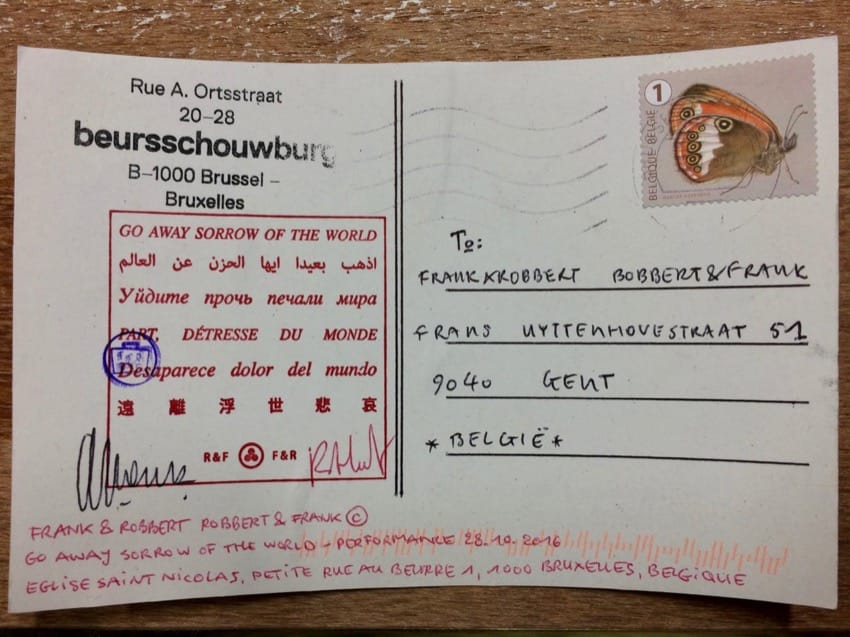 Rue A. Ortsstraat
20–28
beursschouwburg
B–1000 Brussel –
Bruxelles
GO AWAY SORROW OF THE WORLD
اذهب بعيدا ايها الحزن عن العالم
Уйдите прочь печали мира
PART, DÉTRESSE DU MONDE
Desaparece dolor del mundo
遠離浮世悲哀
R&F F&R
1
BELGIQUE BELGIË
To:
FRANK&ROBBERT BOBBERT&FRANK
FRANS UYTTENHOVESTRAAT 51
9040 GENT
*BELGIË*
FRANK & ROBBERT ROBBERT & FRANK ©
GO AWAY SORROW OF THE WORLD, PERFORMANCE 28.10.2016
EGLISE SAINT NICOLAS, PETITE RUE AU BEURRE 1, 1000 BRUXELLES, BELGIQUE